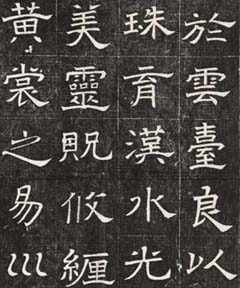 於雲臺良以
珠育漢水光
美靈貺攸纏
黃裳之易巛